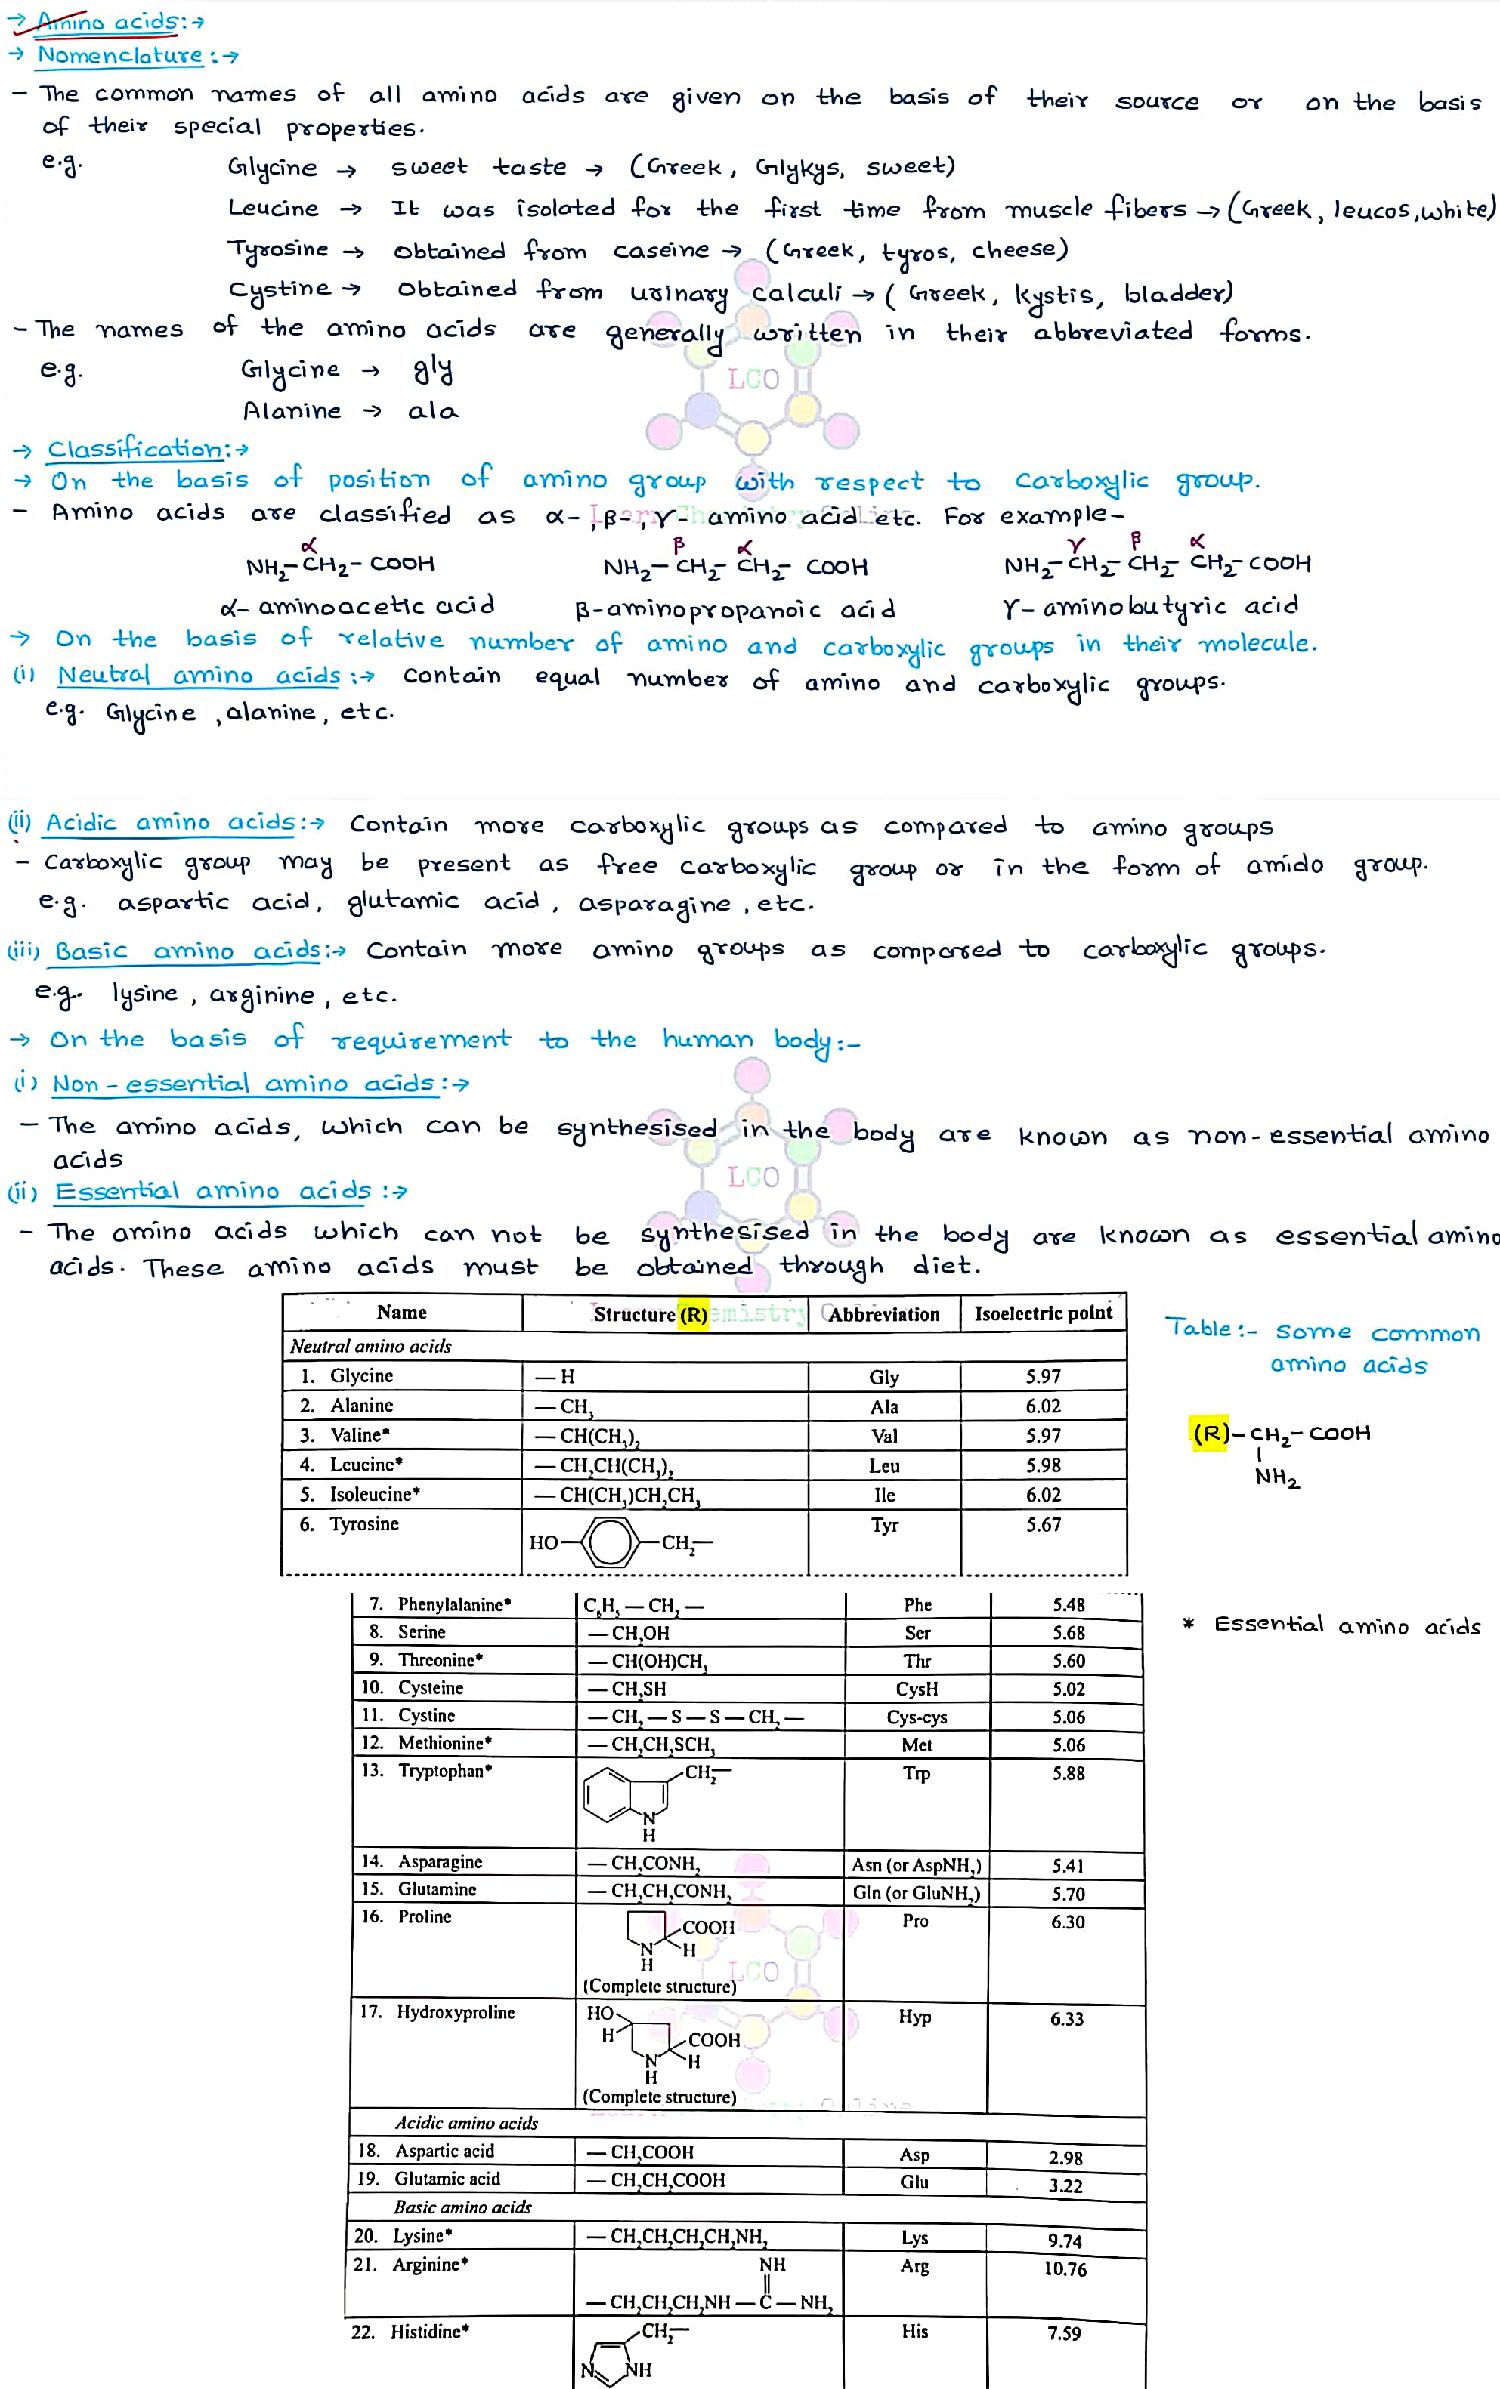 → Amino acids:→
→ Nomenclature:→
- The common names of all amino acids are given on the basis of their source or on the basis
of their special properties.
e.g. Glycine → sweet taste → (Greek, Glykys, sweet)
Leucine → It was isolated for the first time from muscle fibers → (Greek, leucos, white)
Tyrosine → obtained from caseine → (Greek, tyros, cheese)
Cystine → obtained from urinary calculi → (Greek, kystis, bladder)
- The names of the amino acids are generally written in their abbreviated forms.
e.g. Glycine → gly
LCO
Alanine → ala
→ Classification:→
→ On the basis of position of amino group with respect to carboxylic group.
- Amino acids are classified as α-, β-, γ- amino acid etc. For example-
Learn Chemistry Online
α β α γ β α
NH₂-CH₂-COOH NH₂-CH₂-CH₂-COOH NH₂-CH₂-CH₂-CH₂-COOH
α-aminoacetic acid β-aminopropanoic acid γ-aminobutyric acid
→ On the basis of relative number of amino and carboxylic groups in their molecule.
(i) Neutral amino acids:→ Contain equal number of amino and carboxylic groups.
e.g. Glycine, alanine, etc.
(ii) Acidic amino acids:→ Contain more carboxylic groups as compared to amino groups
- Carboxylic group may be present as free carboxylic group or in the form of amido group.
e.g. aspartic acid, glutamic acid, asparagine, etc.
(iii) Basic amino acids:→ Contain more amino groups as compared to carboxylic groups.
e.g. lysine, arginine, etc.
→ On the basis of requirement to the human body:-
(i) Non-essential amino acids:→
- The amino acids, which can be synthesised in the body are known as non-essential amino
acids
LCO
(ii) Essential amino acids:→
- The amino acids which can not be synthesised in the body are known as essential amino
acids. These amino acids must be obtained through diet.
Name Structure (R) Abbreviation Isoelectric point
Table:- some common
amino acids
Neutral amino acids
1. Glycine —H Gly 5.97
2. Alanine —CH₃ Ala 6.02
3. Valine* —CH(CH₃)₂ Val 5.97
(R)-CH₂-COOH
NH₂
4. Leucine* —CH₂CH(CH₃)₂ Leu 5.98
5. Isoleucine* —CH(CH₃)CH₂CH₃ Ile 6.02
6. Tyrosine HO— —CH₂— Tyr 5.67
7. Phenylalanine* C₆H₅—CH₂— Phe 5.48
* Essential amino acids
8. Serine —CH₂OH Ser 5.68
9. Threonine* —CH(OH)CH₃ Thr 5.60
10. Cysteine —CH₂SH CysH 5.02
11. Cystine —CH₂—S—S—CH₂— Cys-cys 5.06
12. Methionine* —CH₂CH₂SCH₃ Met 5.06
13. Tryptophan* CH₂— Trp 5.88
N
H
14. Asparagine —CH₂CONH₂ Asn (or AspNH₂) 5.41
15. Glutamine —CH₂CH₂CONH₂ Gln (or GluNH₂) 5.70
16. Proline COOH Pro 6.30
N H
H
LCO
(Complete structure)
17. Hydroxyproline HO Hyp 6.33
H COOH
N H
H
(Complete structure)
Acidic amino acids
18. Aspartic acid —CH₂COOH Asp 2.98
19. Glutamic acid —CH₂CH₂COOH Glu 3.22
Basic amino acids
20. Lysine* —CH₂CH₂CH₂CH₂NH₂ Lys 9.74
21. Arginine* NH Arg 10.76
—CH₂CH₂CH₂NH—C—NH₂
22. Histidine* CH₂— His 7.59
N NH